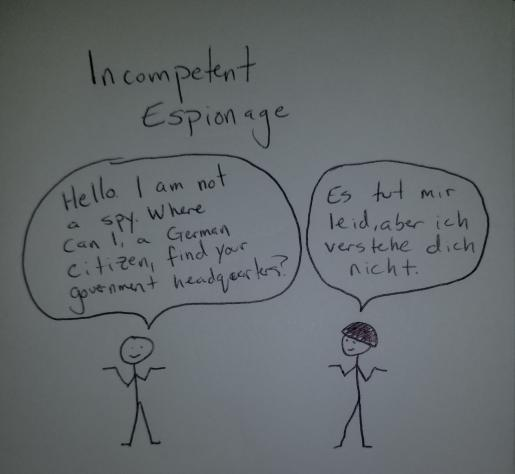 Incompetent
Espionage
Hello. I am not
a spy. Where
can I, a German
citizen, find your
government headquarters?
Es tut mir
leid, aber ich
verstehe dich
nicht.